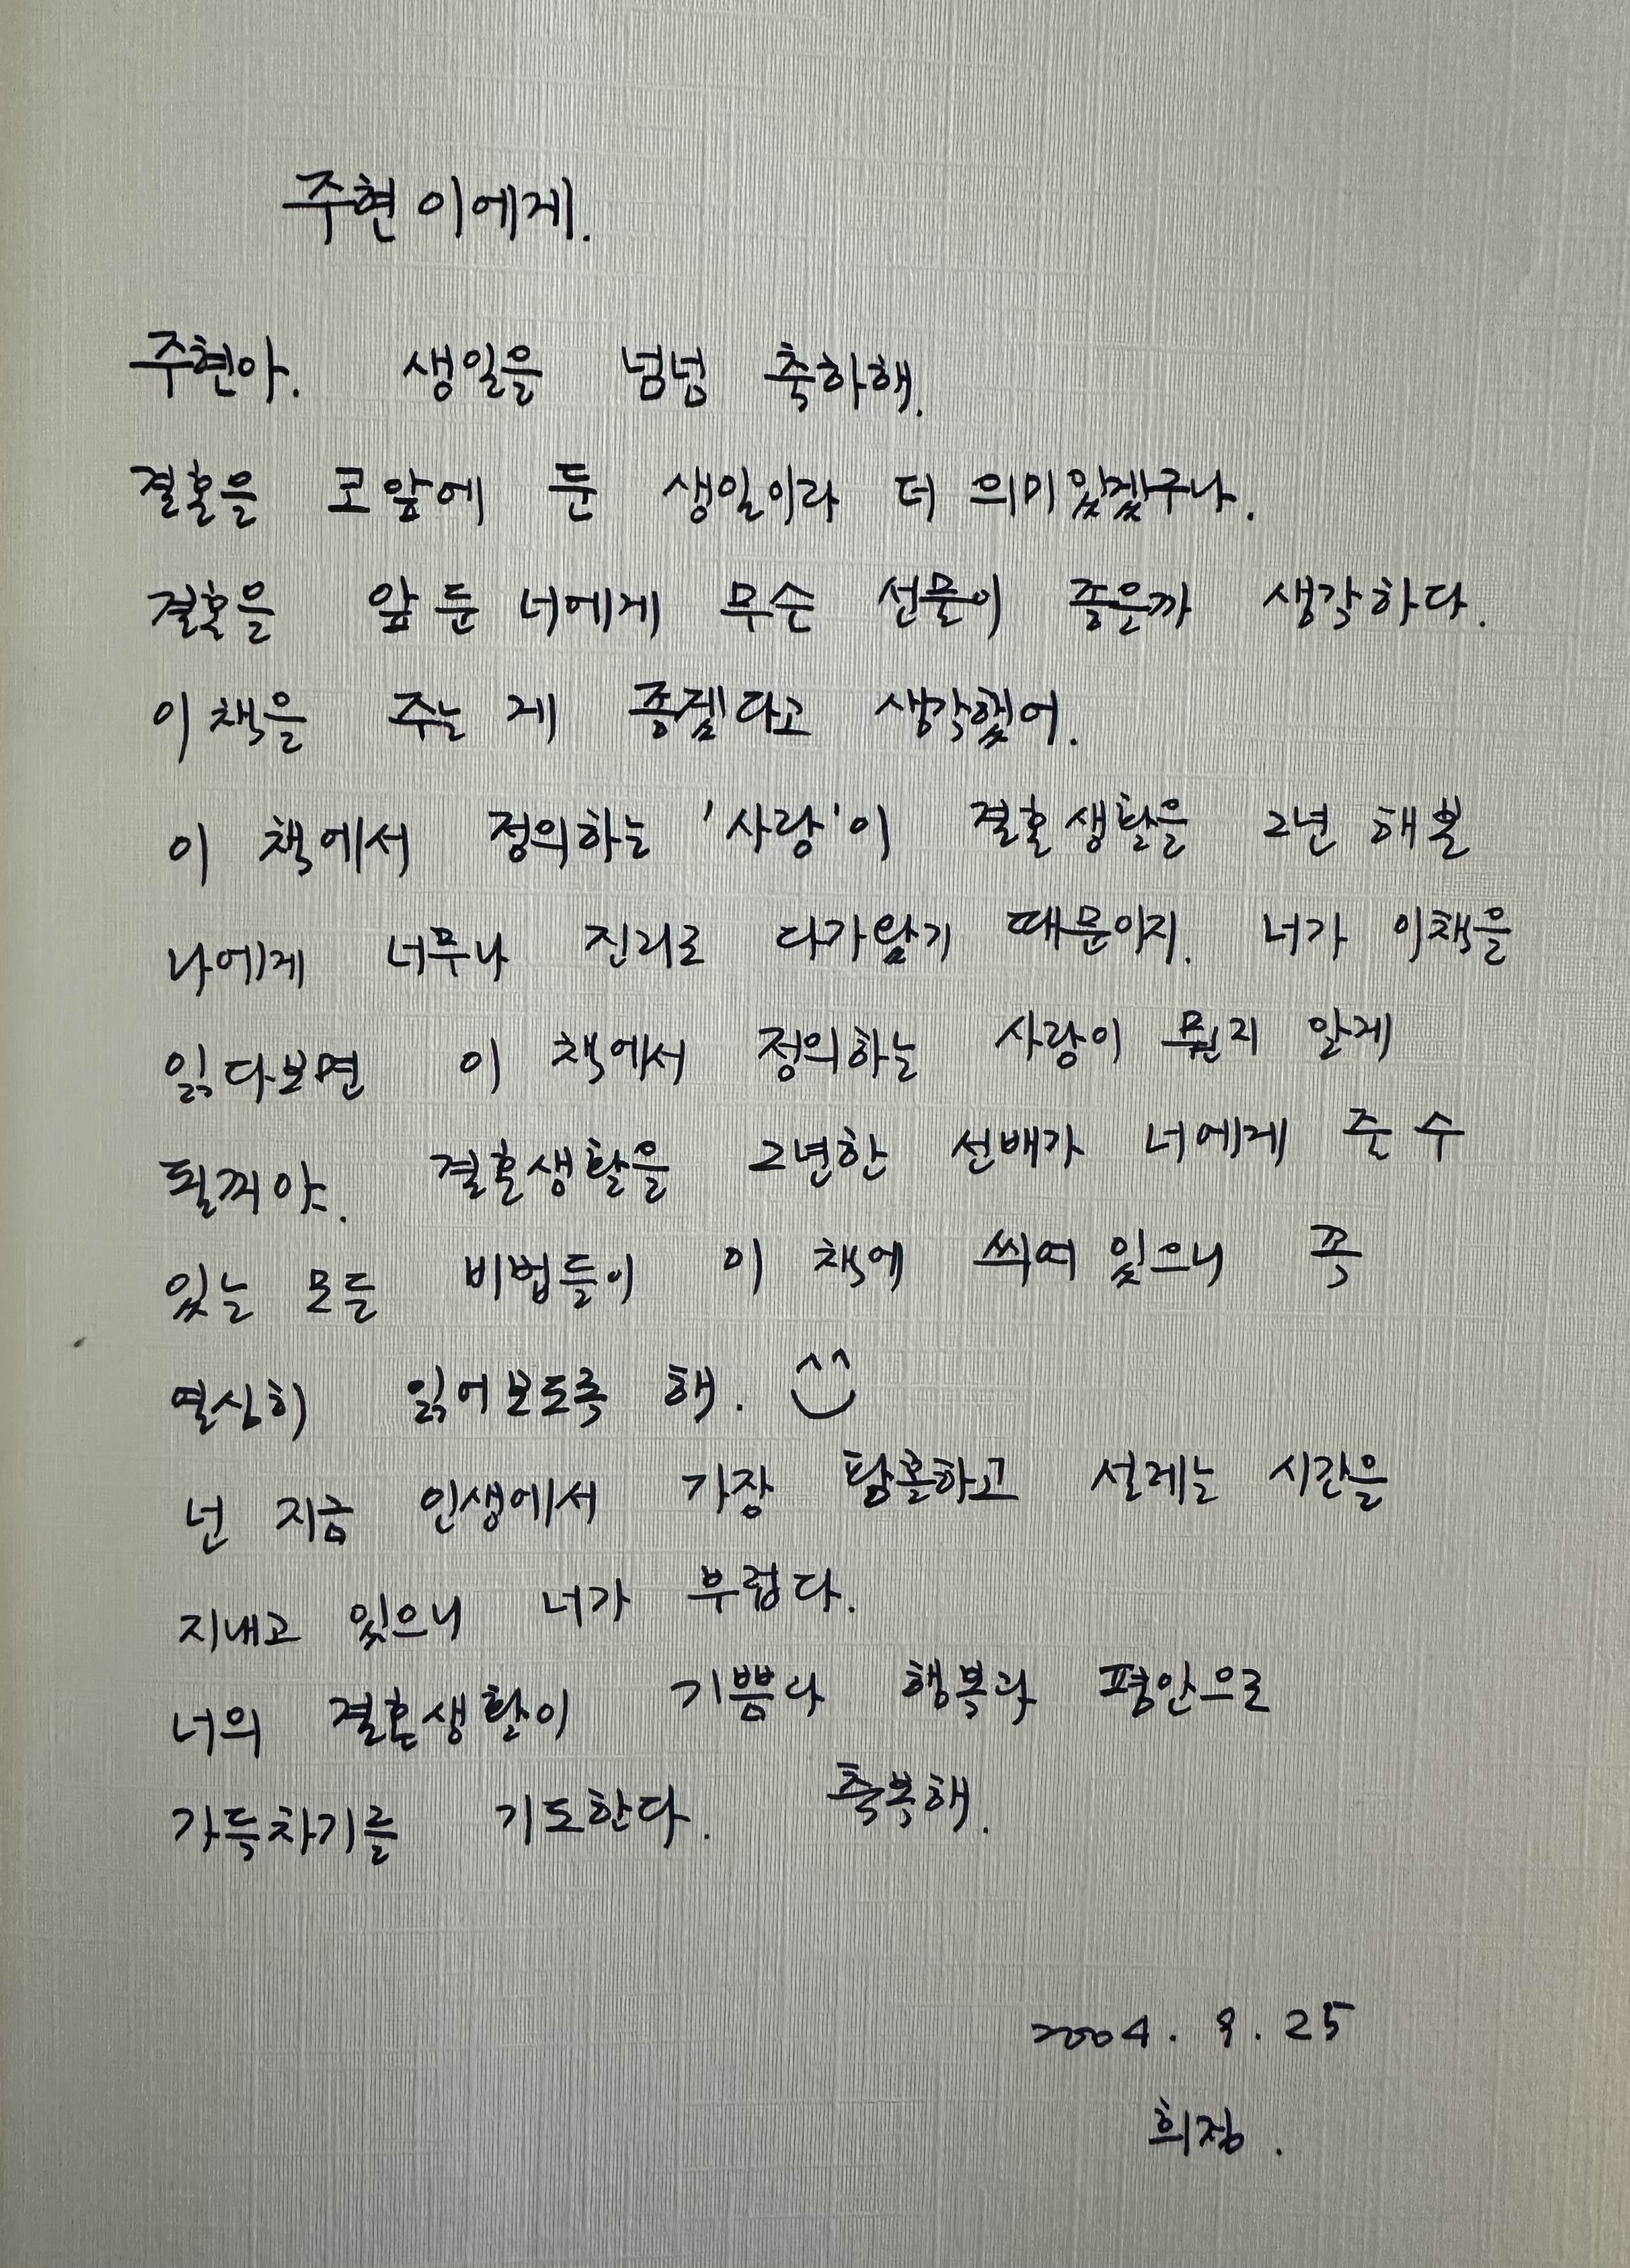 주현이에게.
주현아. 생일을 넘넘 축하해.
결혼을 코앞에 둔 생일이라 더 의미있겠구나.
결혼을 앞둔 너에게 무슨 선물이 좋은까 생각하다.
이 책을 주는 게 좋겠다고 생각했어.
이 책에서 정의하는 '사랑'이 결혼생활을 2년 해본
나에게 너무나 진리로 다가왔기 때문이지. 너가 이책을
읽다보면 이 책에서 정의하는 사랑이 뭔지 알게
될꺼야. 결혼생활을 2년한 선배가 너에게 줄 수
있는 모든 비법들이 이 책에 씌여 있으니 꼭
열심히 읽어보도록 해. ^^
넌 지금 인생에서 가장 달콤하고 설레는 시간을
지내고 있으니 너가 부럽다.
너의 결혼생활이 기쁨과 행복과 평안으로
가득차기를 기도한다. 축복해.
2004. 9. 25
희정.